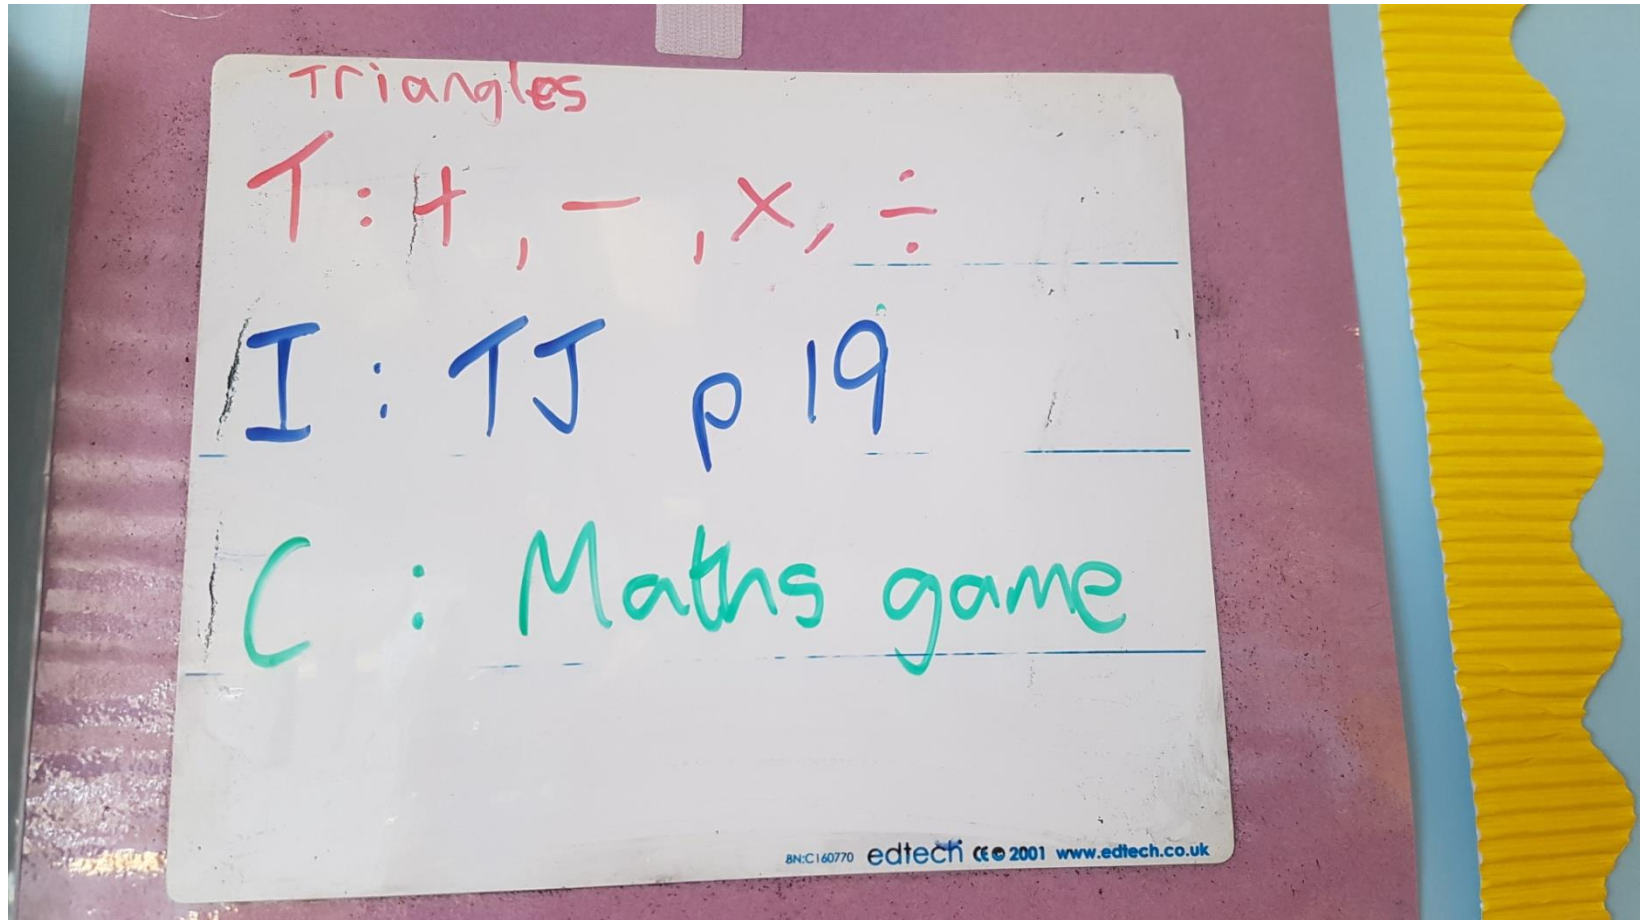 Triangles
T: +, -, x, ÷
I: TJ p 19
C: Maths game
BN:C160770 edtech CE © 2001 www.edtech.co.uk